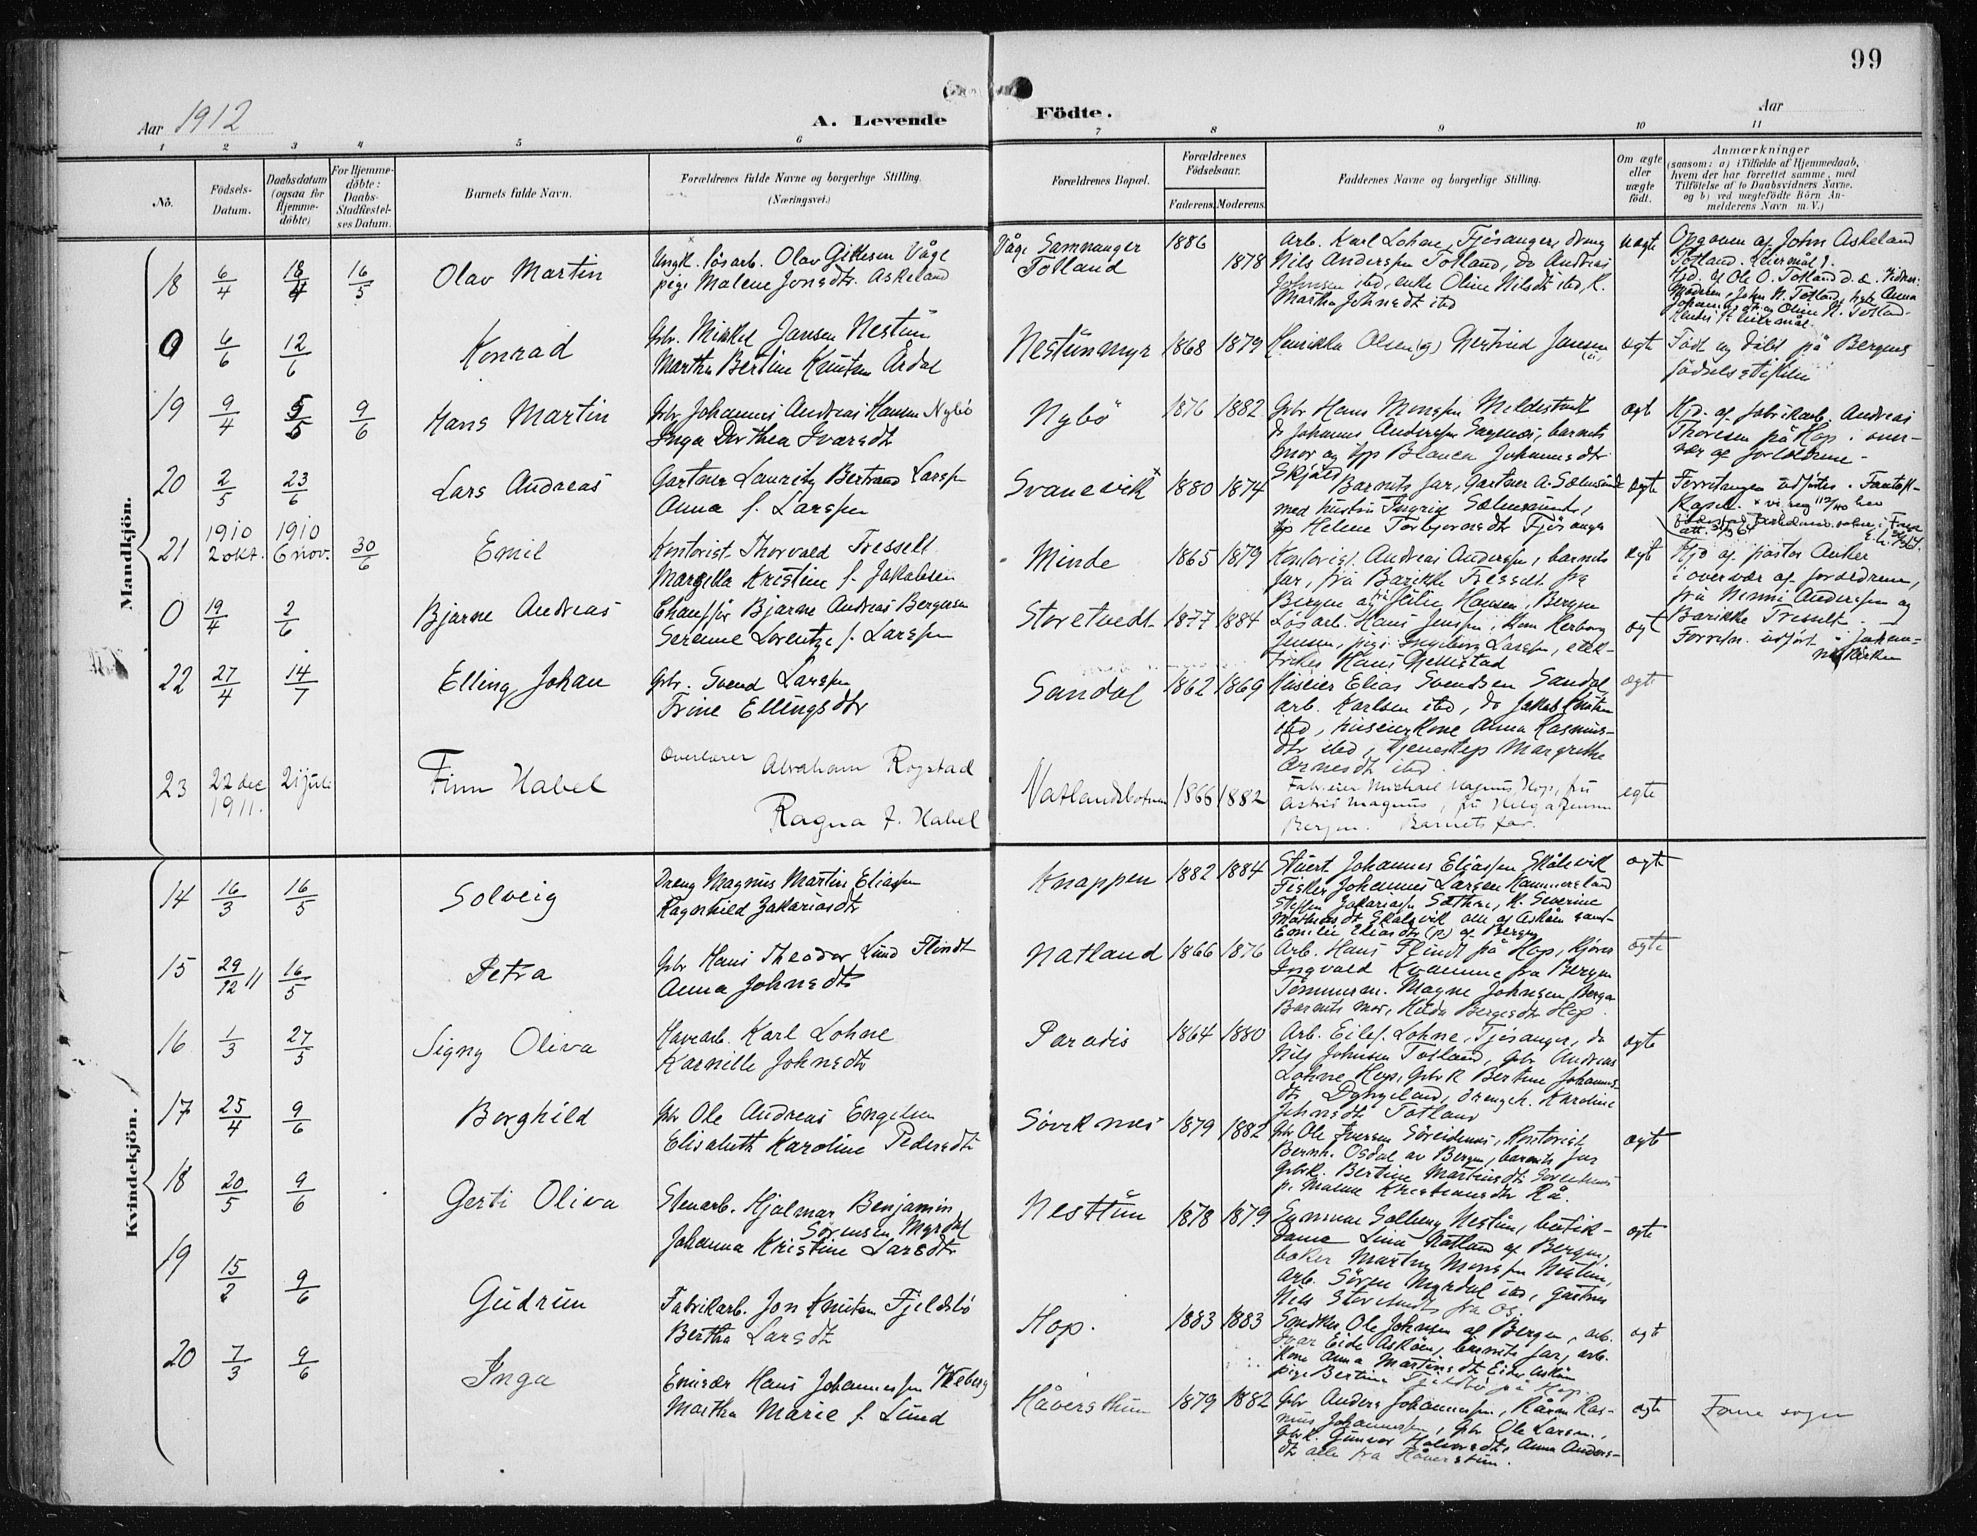 99
Aar 1912
A. Levende Födte.
Aar
1 2 3 4 5 6 7 8 9 10 11
No.
Födsels-Datum.
Daabsdatum (ogsaa för Hjemmedöbte)
For Hjemmedöbte: Daabs-Stadfæstelses Datum.
Barnets fulde Navn.
Forældrenes fulde Navne og borgerlige Stilling.
(Næringsvei.)
Forældrenes Bopæl.
Forældrenes Födselsaar.
Faderens. Moderens.
Faddernes Navne og borgerlige Stilling.
Om ægte eller uægte födt.
Anmærkninger
(saasom: a) i Tilfælde af Hjemmedaab,
hvem der har forrettet samme, med
Tilföielse af to Daabsvidners Navne,
og b) ved uægtefödte Börn An-
melderens Navn m. V.)
Mandkjön.
18 6/4 18/4 16/5 Olav Martin
Ungk. løsarb. Olav Gitlesen Våge
pige Malene Jonsdtr. Askeland
Våge Samnanger
Totland
1886 1878
Arb. Karl Lohne, Fjøsanger, dreng
Nils Andersen Totland, do Andreas
Johnsen ibd, enke Oline Nilsdtr ibd, K.
Martha Johnsdt ibd
uægte
Opgaven af John Askeland
Totland. Leiermål 1.
Hjd. af Ole O. Totland
0 6/6 12/6 Konrad
Gbr. Mikkel Jansen Nestun
Martha Bertine Knutsen Årdal
Nestunmyr 1868 1879
Henrikka Olsen (g) Gertrud Jansen
ægte
Født og døbt på Bergens
fødselsstiftelse
19 9/4 5/5 9/6 Hans Martin
Gbr Johannes Andreas Hansen Nybø
Inga Dorthea Ivarsdtr
Nybø 1876 1882
Gbr Hans Monsen Mildestveit
do Johannes Andersen, barnets
mor og Blanca Johannesdtr
ægte
Hjd. af fabrikarb. Andreas
Thoresen på Hop i over-
vær af forældrene.
20 2/5 23/6 Lars Andreas
Gartner Lauritz Bertrand Larsen
Anna f. Larsen
Svanevik 1880 1874
Skjold
Barnets far, Gartner A. Sælensminde
med hustru Ingrid Sælensminde,
Helene Torbjørnsdtr Fjøsanger
ægte
Forretningen udført i Fantoft
Kapel.
21 1910 2 okt. 1910 6 nov. 30/6 Emil
Kontorist Thorvald Tresselt
Margilla Kristine f. Jakobsen
Minde 1865 1879
Kontorist Andreas Andersen, barnets
far, frå Barikke Tresselt fra
Bergen og Julie Hansen, Bergen
ægt
Hjd af pastor Anker
i overvær af forældrene,
fru Nenni Andersen og
Barikke Tresselt
0 19/4 2/6 Bjarne Andreas
Chauffør Bjarne Andreas Bergesen
Serenne Lorentze f. Larsen
Storetvedt 1877 1884
Løsarb. Hans Jensen, Herborg
Jensen, pige Ingeborg Larsen, elek-
triker Hans Gjellestad
ægt
Forretn. udført i Johan-
neskirken
22 27/4 14/7 Elling Johan
Gbr. Svend Larsen
Trine Ellingsdtr
Sandal 1862 1869
Huseier Elias Svendsen Sandal,
arb. Karlsen ibd, do Jakob Knutsen
ibd, huseierkone Anna Rasmus-
dtr ibd, tjenestep Margrethe
Arnesdt ibd.
ægte
23 22 dec 1911. 21 juli Finn Habel
Overlærer Abraham Rogstad
Ragna f. Habel
Natlandsbotnen 1866 1882
Fab.eier Michael Magnus, Hop, fru
Astrid Magnus, fru Helga Jensen
Bergen. Barnets far.
egte
Kvindekjön.
14 16/3 16/5 Solveig
Dreng Magnus Martin Eliassen
Ragnhild Zakariasdtr
Knappen 1882 1884
Stuert Johannes Eliassen Skålevik
Fisker Johannes Larsen Hammersland
Steffen Zakariassen Sæthre, K. Severine
Mathiasdt Skålevik alle af Askøen samt
Emilie Eliasdtr (p) af Bergen
ægte
15 29/12 11 16/5 Petra
Gbr Hans Theodor Lund Flindt
Anna Johnsdtr
Natland 1866 1876
Arb. Hans Flindt på Hop, kjører
Ingvald Kvamme fra Bergen
Tømmerm. Magne Johnsen, Bergen
Barnets mor, Hilda Bergesdt Hop.
ægte
16 1/3 27/5 Signy Oliva
Havearb. Karl Lohne
Karnille Johnsdtr
Paradis 1864 1880
Arb. Eilef Lohne, Fjøsanger, do
Nils Johnsen Totland, gbr Andreas
Lohne Hop, GbrK Bertine Johannes
dtr Dyngeland, drengek. Karoline
Johnsdtr Totland
ægte
17 25/4 9/6 Borghild
Gbr Ole Andreas Engelsen
Elisabeth Karoline Pedersdtr
Søviknes 1879 1882
Gbr Ole Iversen Søreidenes, Kontorist
Bernh. Osdal av Bergen, barnets far
GbrK. Bertine Martinsdtr
p. Malene Kristiansdtr Rå.
ægte
18 20/5 9/6 Gerti Oliva
Stenarb. Hjalmar Benjamin
Sørensen Myrdal
Johanna Kristine Larsdtr
Nesttun 1878 1879
Gunnar Solberg Nestun, butik-
dame Lina Natland af Bergen,
baker Martin Monsen Nestun,
arb. Søren Myrdal ibd, gartner
Nils Storetvedt fra Os.
ægte
19 15/2 9/6 Gudrun
Fabrikarb. Jon Knutsen Fjeldsbø
Bertha Larsdtr
Hop. 1883 1883
Ole Johnsen af Bergen, arb.
Ivar Eide Askøen, barnets far, arb.
Kone Anna Martinsdtr Eide Askøen
pige Bertina Fjeldsbø på Hop.
ægte
20 7/3 9/6 Inga
Emisær Hans Johannessen Wiberg
Martha Marie f. Lund
Håversthun 1879 1882
Gbr Anders Johannessen, Råen Ras-
mus Johannessen, Gbr Ole Larsen,
GbrK. Gunvor Halvorsdtr, Anna Anders-
dtr alle fra Håverstun.
ægte
Fane sogn